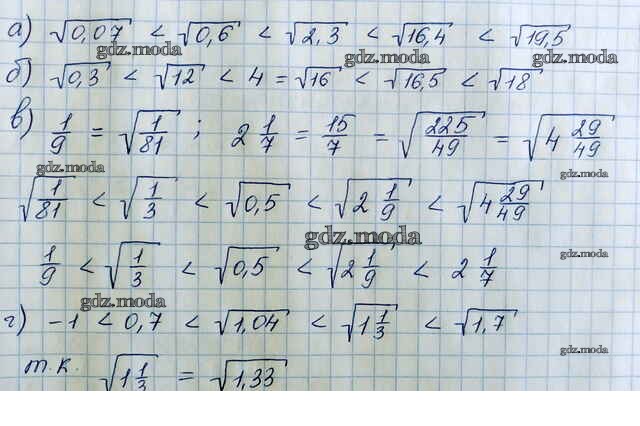 а) √0,07 < √0,6 < √2,3 < √16,4 < √19,5
gdz.moda gdz.moda
б) √0,3 < √12 < 4 = √16 < √16,5 < √18
в) 1/9 = √(1/81) ; 2 1/7 = 15/7 = √(225/49) = √(4 29/49)
gdz.moda gdz.moda
√(1/81) < √(1/3) < √0,5 < √(2 1/9) < √(4 29/49)
gdz.moda
1/9 < √(1/3) < √0,5 < √(2 1/9) < 2 1/7
gdz.moda
gdz.moda
г) -1 < 0,7 < √1,04 < √(1 1/3) < √1,7
gdz.moda
т.к. √(1 1/3) = √1,33